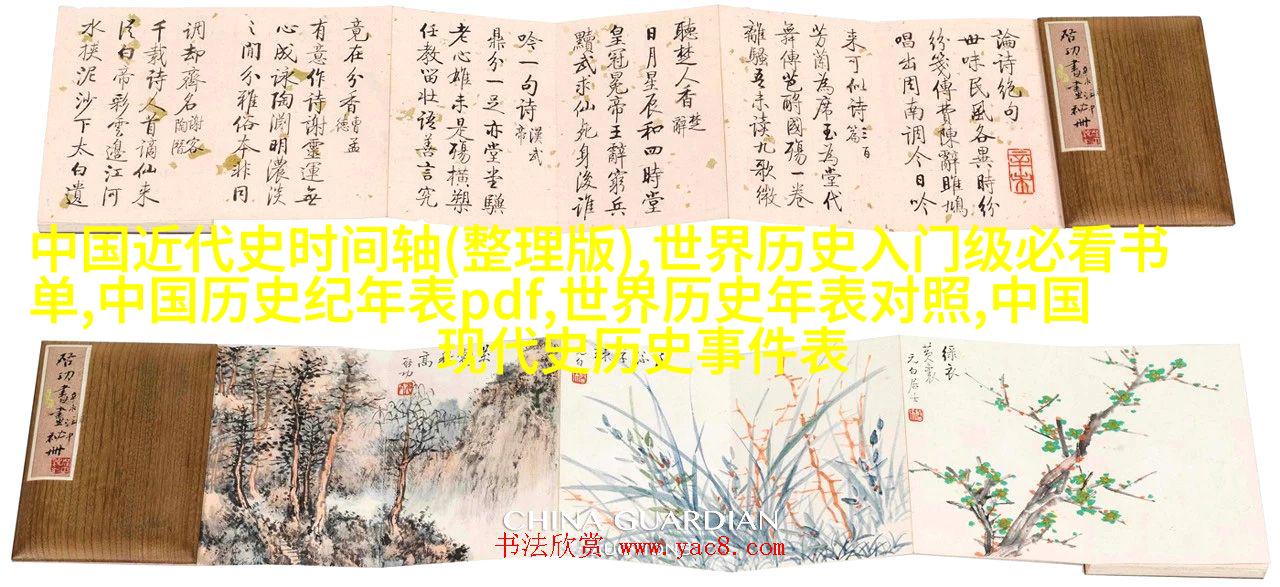 啓功書畫袖冊
論詩絕句
世味民風各異時紛
紛箋傳費陳辭雎鳩
唱出周南調今日吟
来可似詩三百篇
芳蘭為席玉為堂代
舞傳芭酹國殤一卷
離騷吾未读九歌微
聽楚人香楚辭
日月星辰和四時堂
皇冠冕帝王辭窮兵
黷武求仙死身後誰
吟一句詩漢武帝
鼎分一足亦堂堂驥
老心雄未是殤橫槊
任教留壯語善言究
竟在分香曹孟德
有意作詩謝靈運無
心成詠陶淵明濃淡
之間分雅俗本非同
調却齊名謝客陶潛
千載詩人首謫仙来
從白帝彩雲邊江河
水挾泥沙下太白遺
中国近代史时间轴(整理版),世界历史入门级必看书
单,中国历史纪年表pdf,世界历史年表对照,中国
现代史历史事件表
綠衣
黃裏
元白居士
啓功
啓功書畫袖冊
CHINA GUARDIAN
书法欣赏 www.yac8.com